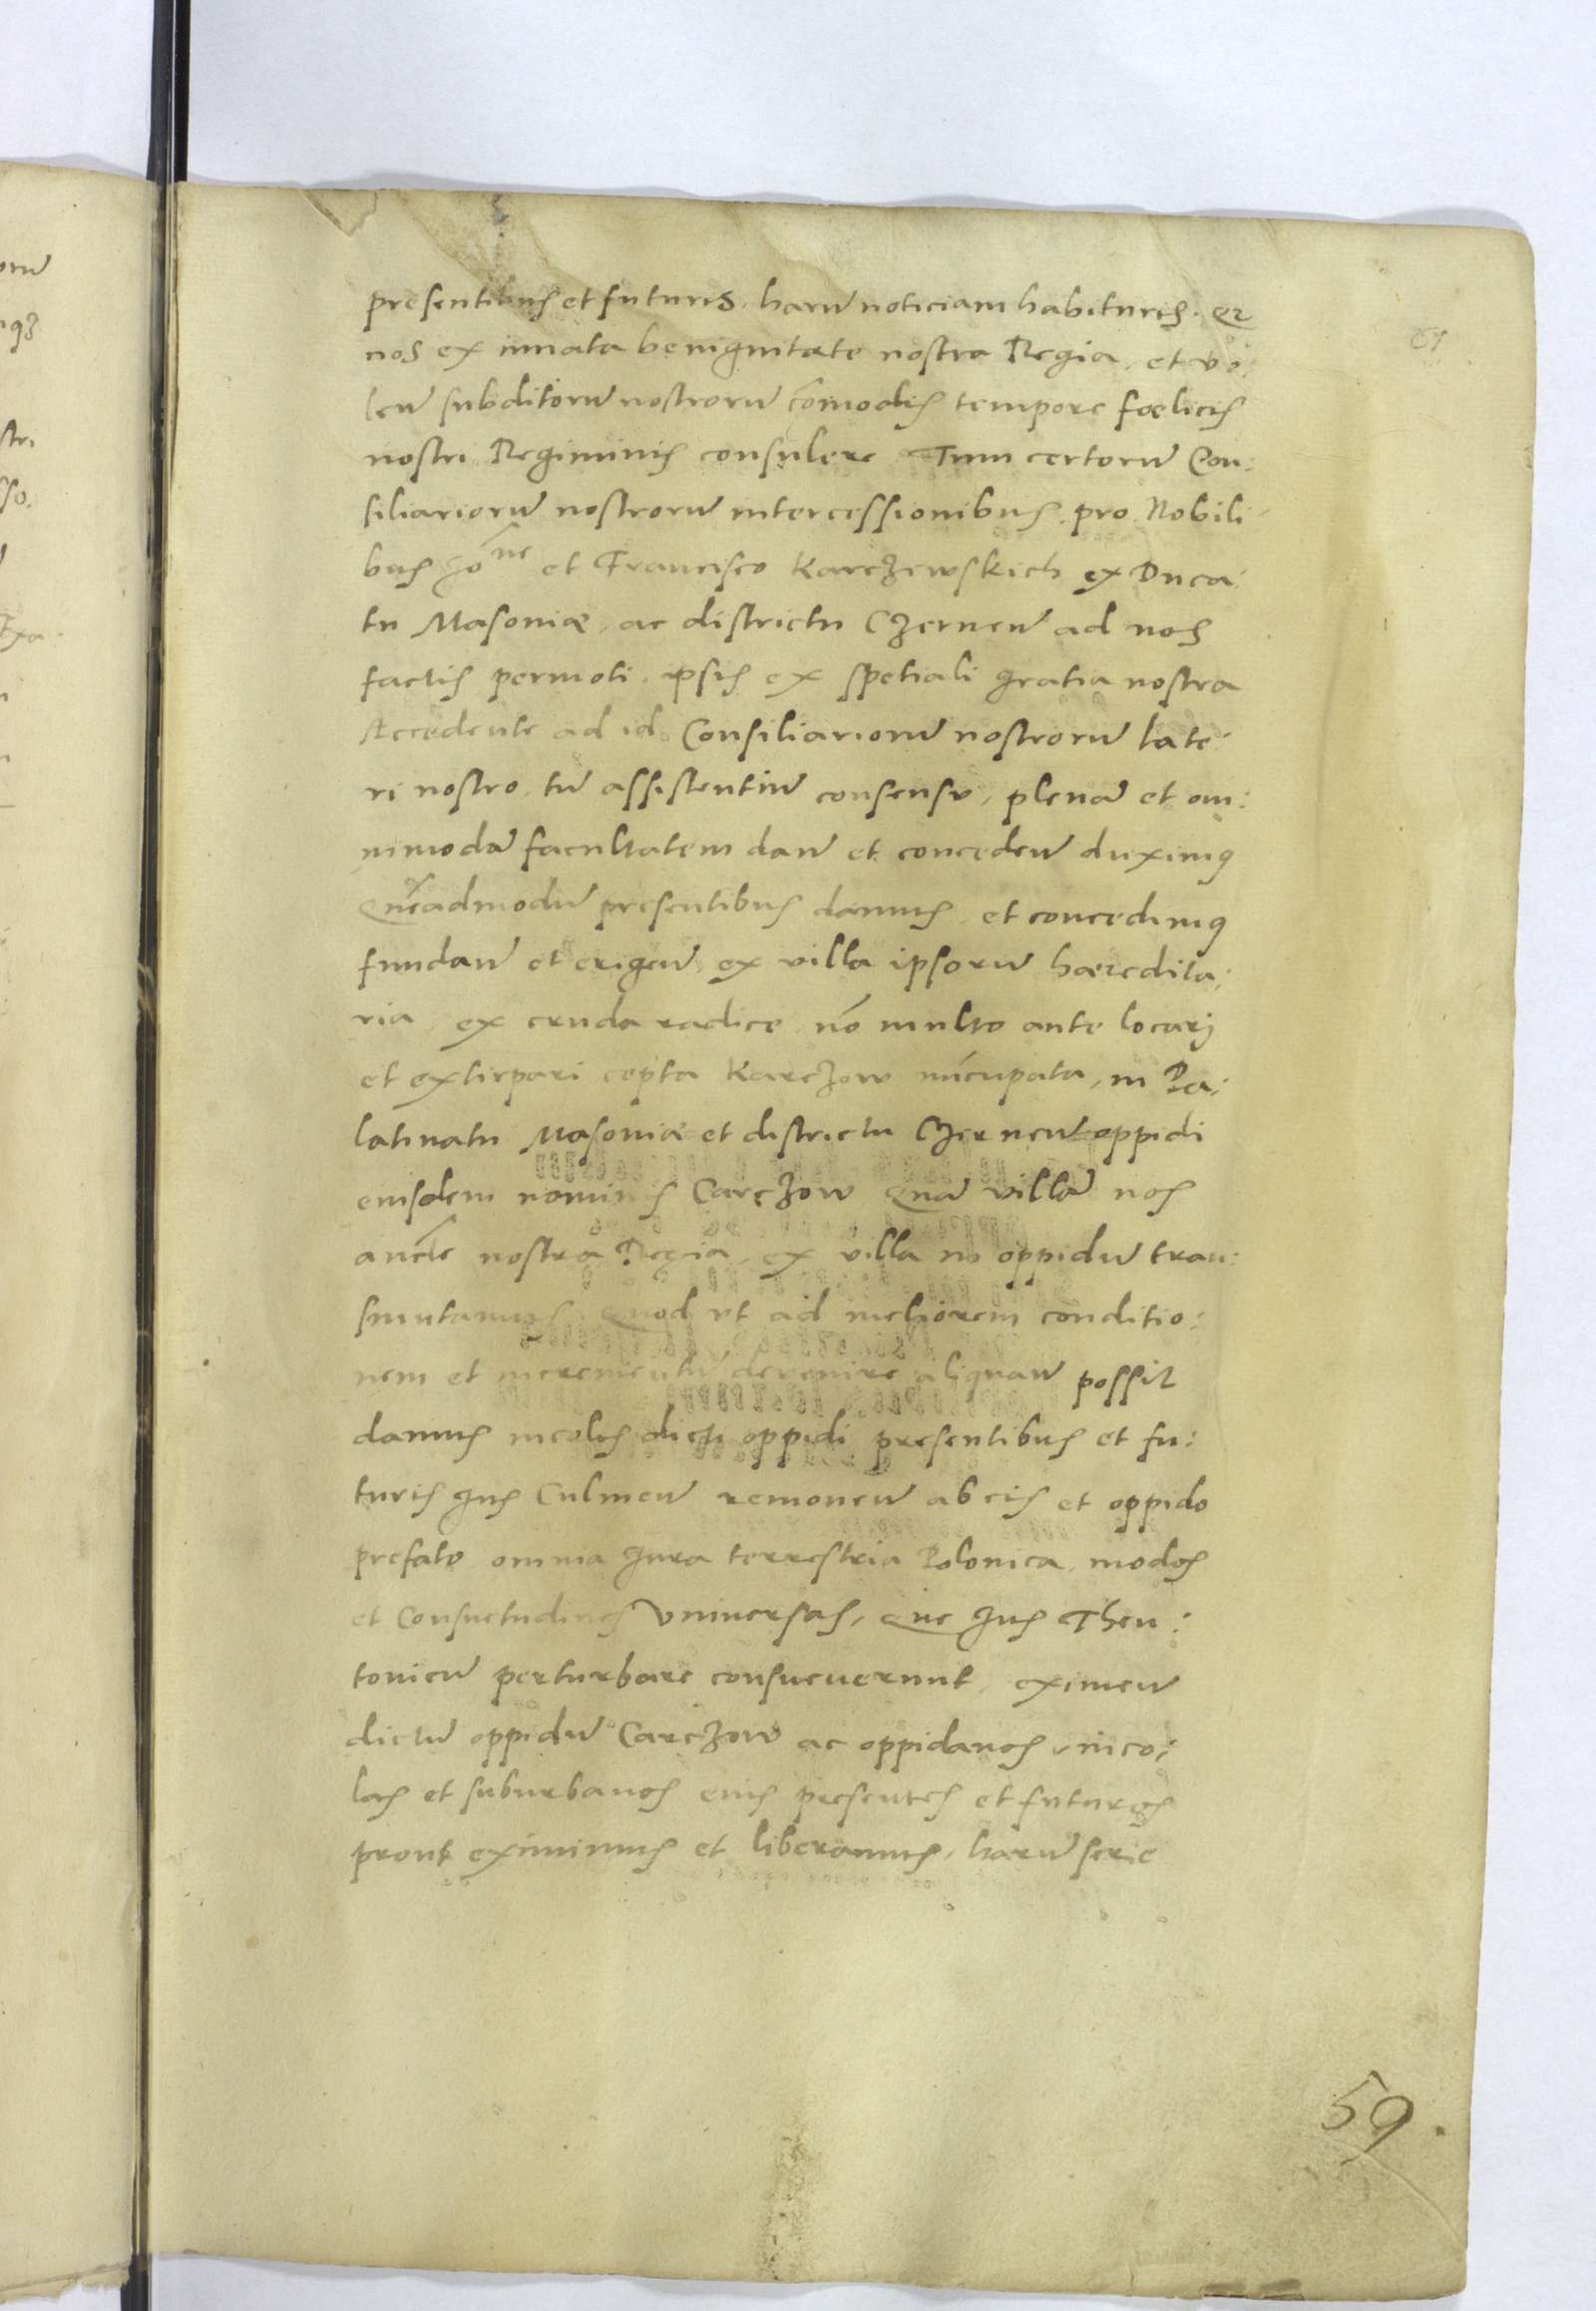 presentibus et futuris harũ noticiam habituris. Q2
nos ex innata benignitate nostra Regia, et vo:
len̄ subditorũ nostrorũ cõmodis tempore fœlicis
nostri Regiminis consulere Tum certorũ Con:
siliariorũ nostrorũ intercessionibus pro Nobili
bus Joñne et Francisco Karczewskich ex Duca:
tu Masoviæ, ac districtu Czernen̄ ad nos
factis permoti ipsis ex spetiali gratia nostra
Accedente ad id Consiliariorũ nostrorũ late:
ri nostro tũ assistentiũ consensu, plenã et om:
nimodã facultatem dan̄ et conceden̄ duximq
Quẽadmodũ presentibus damus, et concedimq
fundan̄ et erigen̄ ex villa ipsorũ hæredita:
ria, ex cruda radice nõ multo ante locarj
et extirpari cepta Karczow nũcupata, in Pa:
latinatu Masoviæ et districtu Czernen̄ oppidi
eiusdem nominis Carczow Quã villã nos
aucťe nostra Regia, ex villa in oppidũ tran:
smutamus Quod vt ad meliorem conditio:
nem et incrementũ devenire aliquan̄ possit
damus incolis dicti oppidi presentibus et fu:
turis Jus Culmen̄ removen̄ ab eis et oppido
prefato omnia Jura terrestria Polonica modos
et Consuetudines vniversas, que Jus Theu:
tonicũ perturbare consueverunt, eximen̄
dictũ oppidũ Carczow ac oppidanos inco:
las et suburbanos eius presentes et futuros
prout eximimus et liberamus, harũ serie
59.